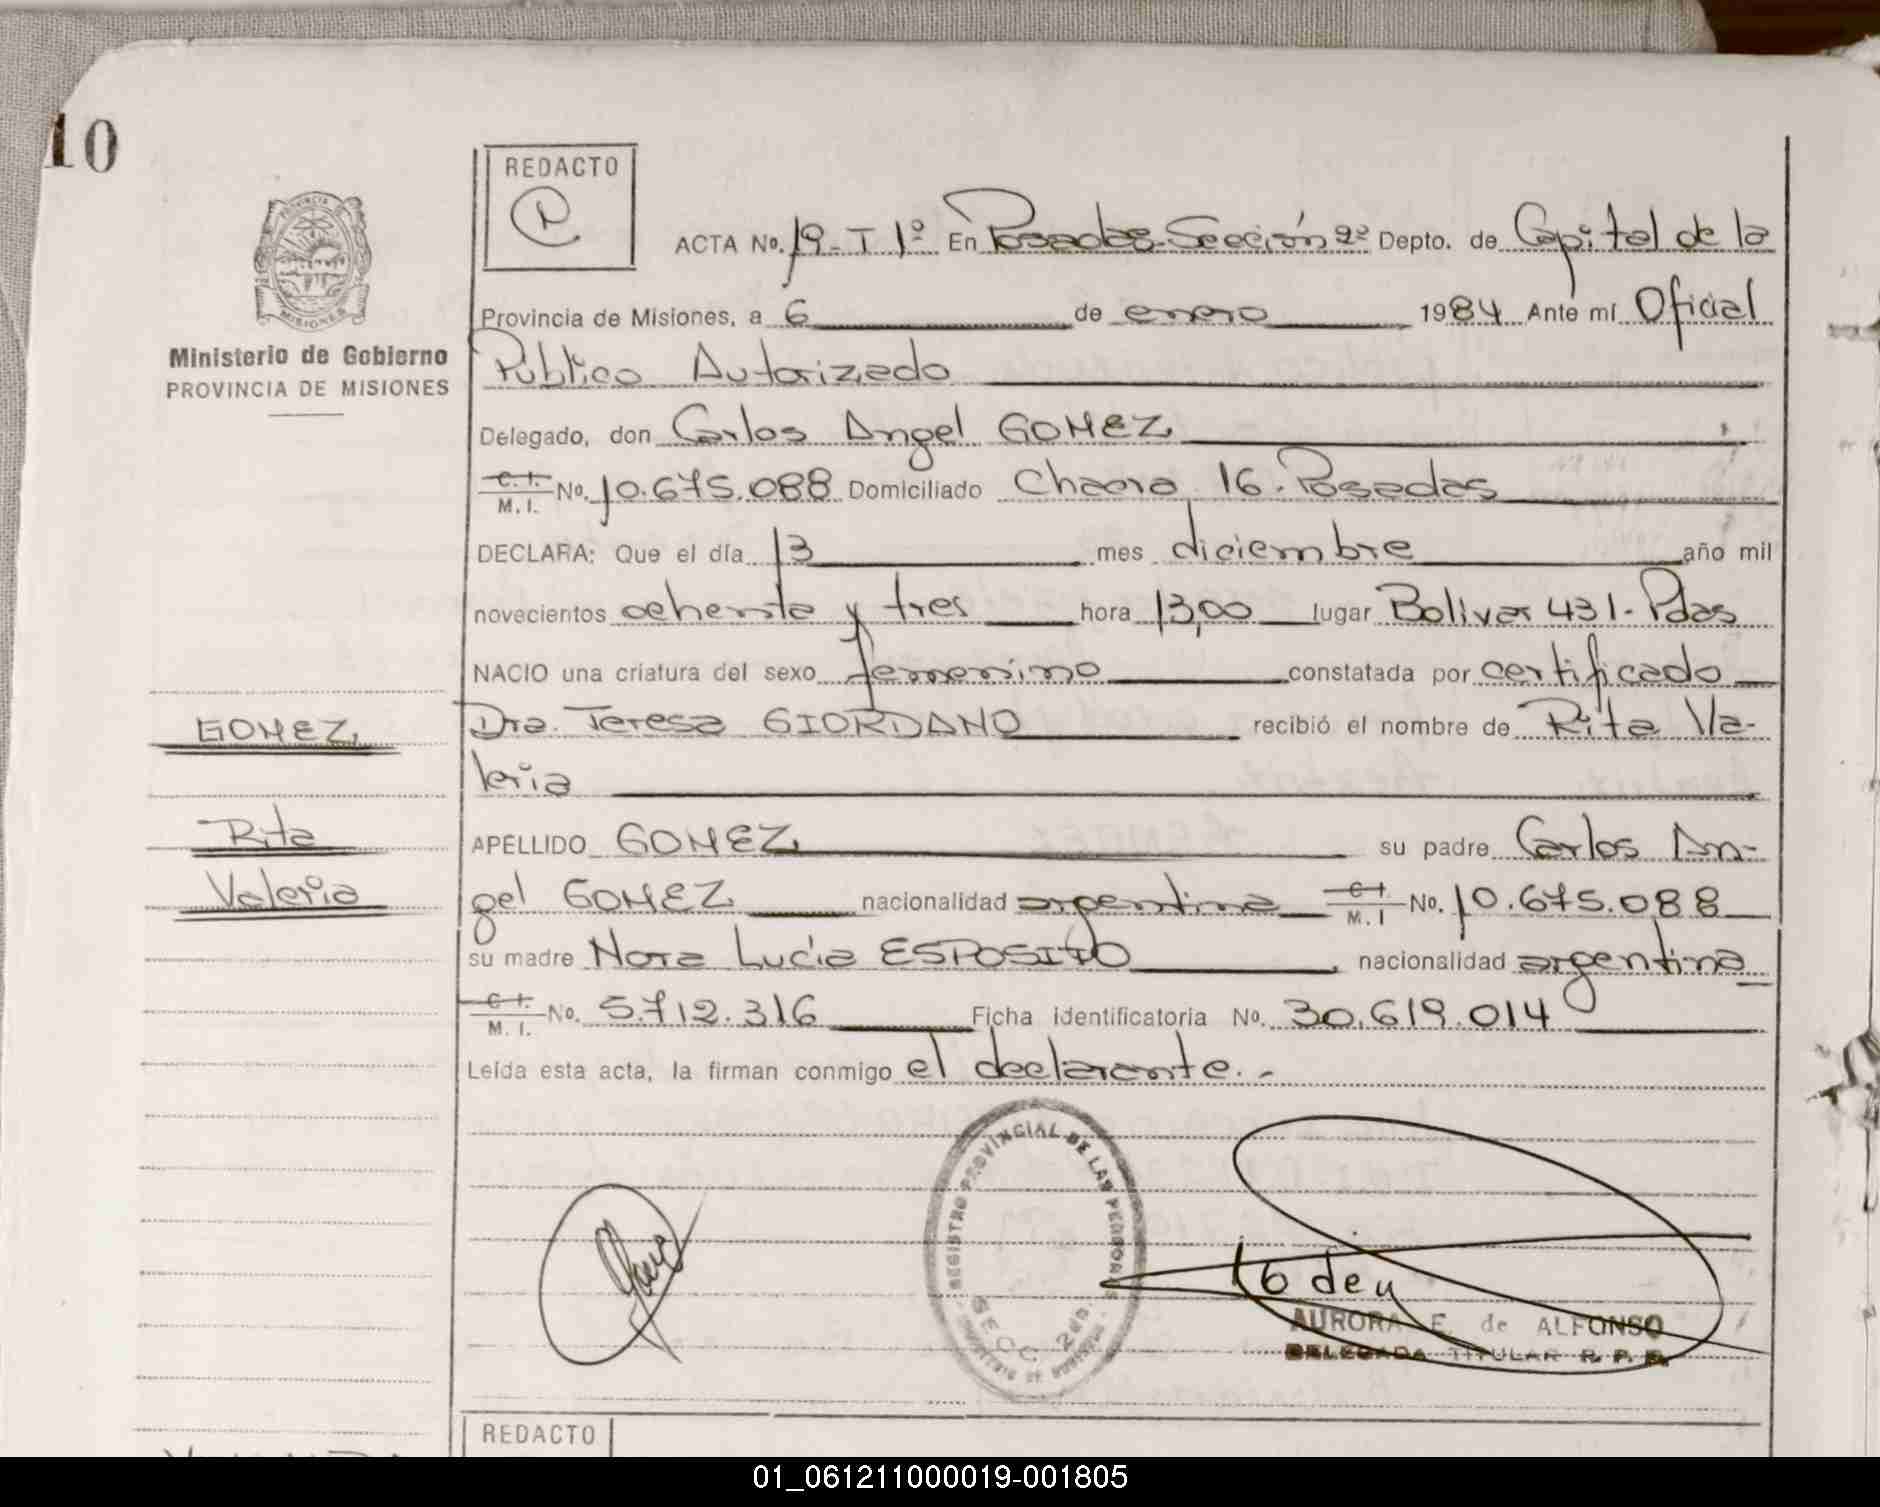 10
REDACTO
ACTA No. 19-T 1º En Posadas-Sección 2º Depto. de Capital de la
PROVINCIA DE
MISIONES
Provincia de Misiones, a 6 de enero 1984 Ante mí Oficial
Ministerio de Gobierno
PROVINCIA DE MISIONES
Público Autorizado
Delegado, don Carlos Angel GOMEZ
C.I. M.I. No. 10.675.088 Domiciliado Chacra 16.Posadas
DECLARA: Que el día 13 mes diciembre año mil
novecientos ochenta y tres hora 13,00 lugar Bolivar 431-Pdas
NACIO una criatura del sexo femenino constatada por certificado
GOMEZ, Dra. Teresa GIORDANO recibió el nombre de Rita Va-
leria
Rita
APELLIDO GOMEZ su padre Carlos An-
Valeria
gel GOMEZ nacionalidad argentina C.I. M.I No. 10.675.088
su madre Nora Lucia ESPOSITO nacionalidad argentina
C.I. M.I. No. 5.712.316 Ficha identificatoria No. 30.619.014
Leída esta acta, la firman conmigo el declarante.-
REGISTRO PROVINCIAL DE LAS PERSONAS
SECC. 2da
MINISTERIO DE GOBIERNO
AURORA E. de ALFONSO
DELEGADA TITULAR R. P. P.
REDACTO
01_061211000019-001805